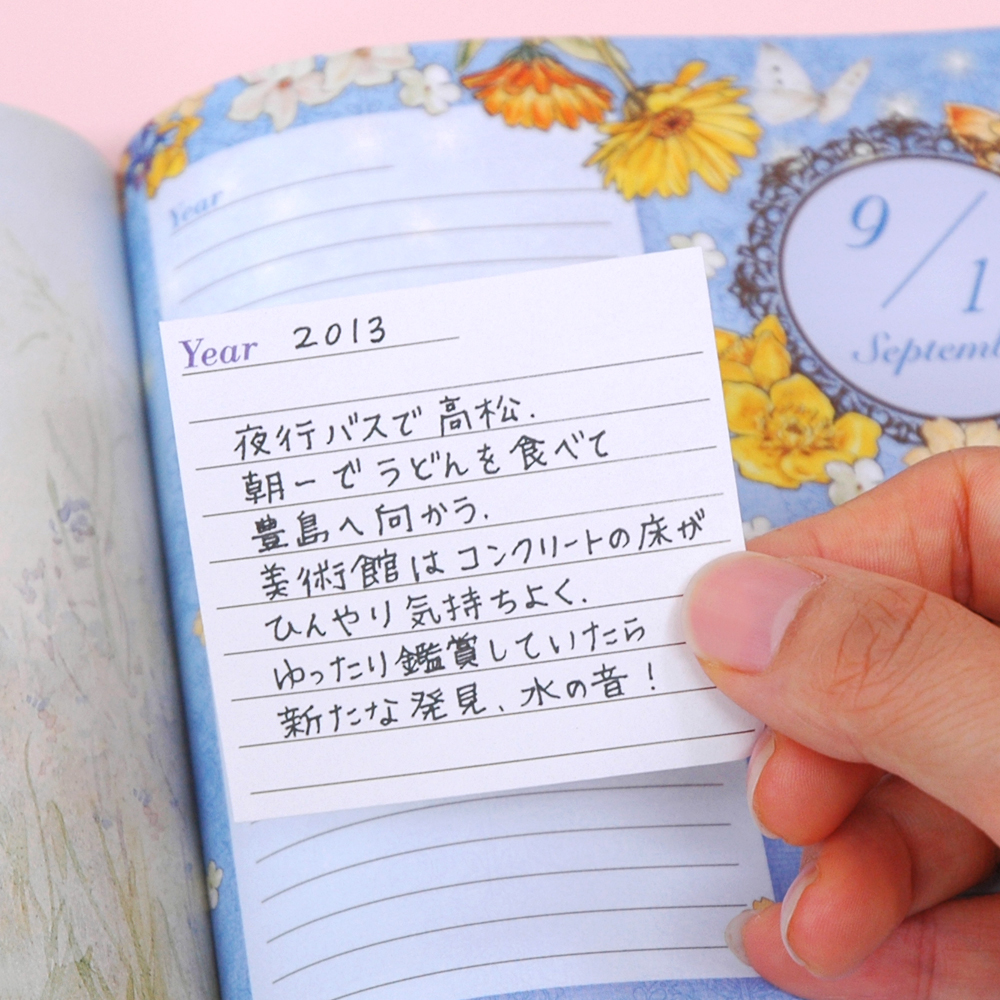 Year
9/1
Septemb
Year 2013
夜行バスで高松.
朝一でうどんを食べて
豊島へ向かう.
美術館はコンクリートの床が
ひんやり気持ちよく.
ゆったり鑑賞していたら
新たな発見、水の音!